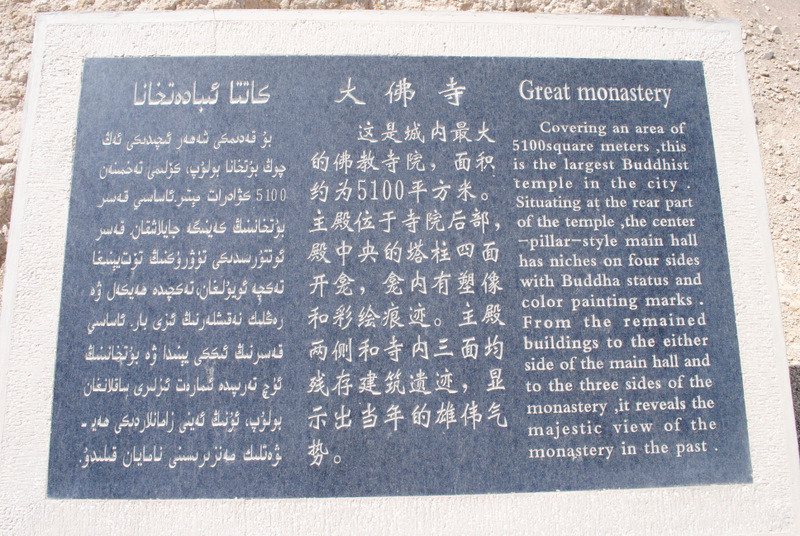 كاتتا ئىبادەتخانا
بۇ قەدىمكى شەھەر ئىچىدىكى ئەڭ
چوڭ بۇتخانا بولۇپ، كۆلىمى تەخمىنەن
5100 كۋادرات مېتىر.ئاساسىي قەسىر
بۇتخانىنىڭ كەينىگە جايلاشقان. قەسىر
ئوتتۇرىسىدىكى تۈۋرۈكنىڭ تۆت يېنىغا
تەكچە ئويۇلغان، تەكچىدە ھەيكەل ۋە
رەڭلىك نەقىشلەرنىڭ ئىزى بار. ئاساسىي
قەسىرنىڭ ئىككى يېنىدا ۋە بۇتخانىنىڭ
ئۈچ تەرىپىدە ئىمارەت ئىزلىرى ساقلانغان
بولۇپ، ئۇنىڭ ئەينى زامانلاردىكى ھەيـ
ۋەتلىك مەنزىرىسىنى نامايان قىلىدۇ.
大佛寺
这是城内最大
的佛教寺院，面积
约为5100平方米。
主殿位于寺院后部，
殿中央的塔柱四面
开龛，龛内有塑像
和彩绘痕迹。主殿
两侧和寺内三面均
残存建筑遗迹，显
示出当年的雄伟气
势。
Great monastery
Covering an area of
5100square meters ,this
is the largest Buddhist
temple in the city .
Situating at the rear part
of the temple ,the center
-pillar-style main hall
has niches on four sides
with Buddha status and
color painting marks .
From the remained
buildings to the either
side of the main hall and
to the three sides of the
monastery ,it reveals the
majestic view of the
monastery in the past .